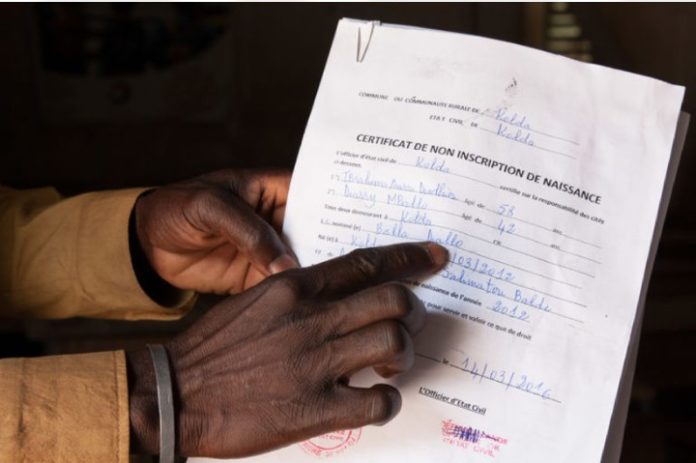 COMMUNE OU COMMUNAUTE RURALE DE Kolda
ETAT CIVIL DE Kolda
CERTIFICAT DE NON INSCRIPTION DE NAISSANCE
L'officier d'état civil de Kolda certifie sur la responsabilité des cités
ci-dessous.
1°) Ibrahima agé de 58 ans
2°) Diarry MBallo agé de 42 ans
Tous deux demeurant à Kolda
Le nommé(e) Balla Diallo
Né(e) à Kolda /03/2012
Salimatou Balde
de naissance de l'année 2012
pour servir et valoir ce que de droit
le 14/03/2016
L'Officier d'Etat Civil
ETAT CIVIL